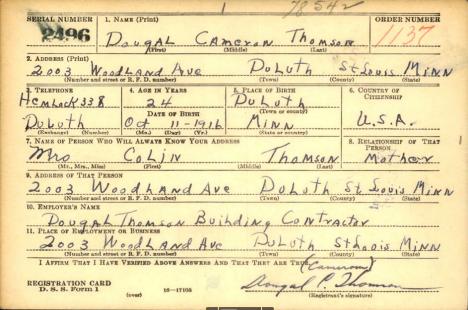 78542
SERIAL NUMBER 1. NAME (Print) ORDER NUMBER
2496 Dougal Cameron Thomson 1137
(First) (Middle) (Last)
2. ADDRESS (Print)
2003 Woodland Ave Duluth St Louis Minn
(Number and street or R. F. D. number) (Town) (County) (State)
3. TELEPHONE 4. AGE IN YEARS 5. PLACE OF BIRTH 6. COUNTRY OF CITIZENSHIP
Hemlock 338 24 Duluth
(Town or county)
DATE OF BIRTH
Duluth Oct 11-1916 Minn U.S.A.
(Exchange) (Number) (Mo.) (Day) (Yr.) (State or country)
7. NAME OF PERSON WHO WILL ALWAYS KNOW YOUR ADDRESS 8. RELATIONSHIP OF THAT PERSON
Mrs Colin Thomson Mother
(Mr., Mrs., Miss) (First) (Middle) (Last)
9. ADDRESS OF THAT PERSON
2003 Woodland Ave Duluth St Louis Minn
(Number and street or R. F. D. number) (Town) (County) (State)
10. EMPLOYER'S NAME
Dougal Thomson Building Contractor
11. PLACE OF EMPLOYMENT OR BUSINESS
2003 Woodland Ave Duluth St Louis Minn
(Number and street or R. F. D. number) (Town) (County) (State)
I AFFIRM THAT I HAVE VERIFIED ABOVE ANSWERS AND THAT THEY ARE TRUE.
(Cameron)
REGISTRATION CARD Dougal C. Thomson
D. S. S. Form 1 (over) 16—17105 (Registrant's signature)